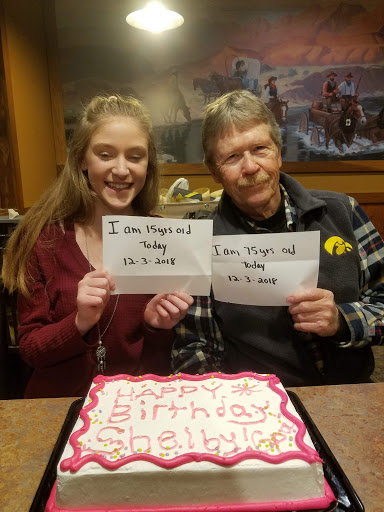 I am 15yrs old
Today
12-3-2018
I am 75yrs old
Today
12-3-2018
HAPPY
Birthday
Shelby!